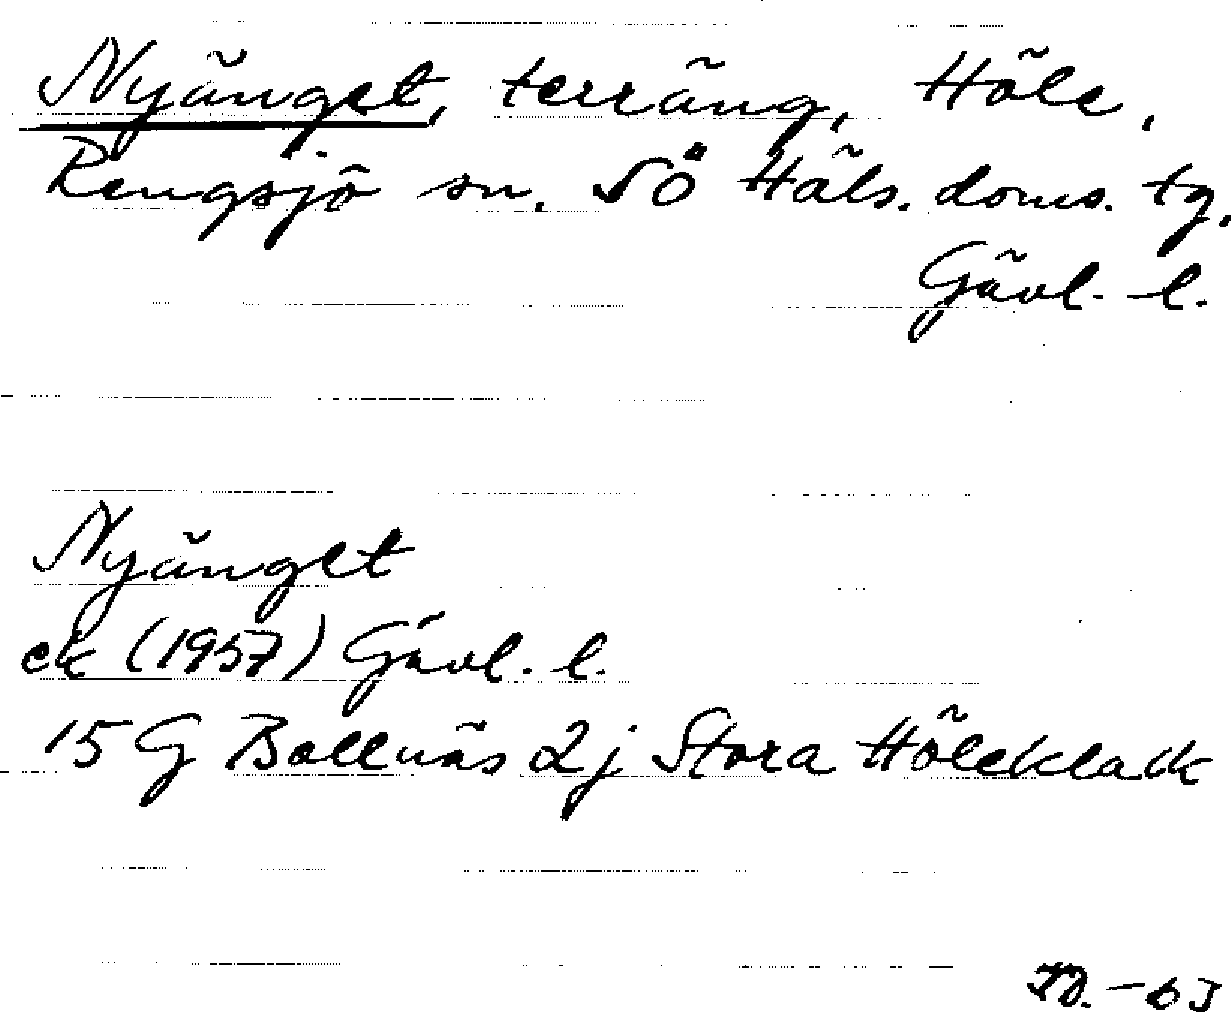 Nyänget, terräng, Höle,
Rengsjö sn. SÖ Häls. doms. tg.
Gävl. l.
Nyänget
ek (1957) Gävl. l.
15 G Bollnäs 2j Stora Hölecklack
-63